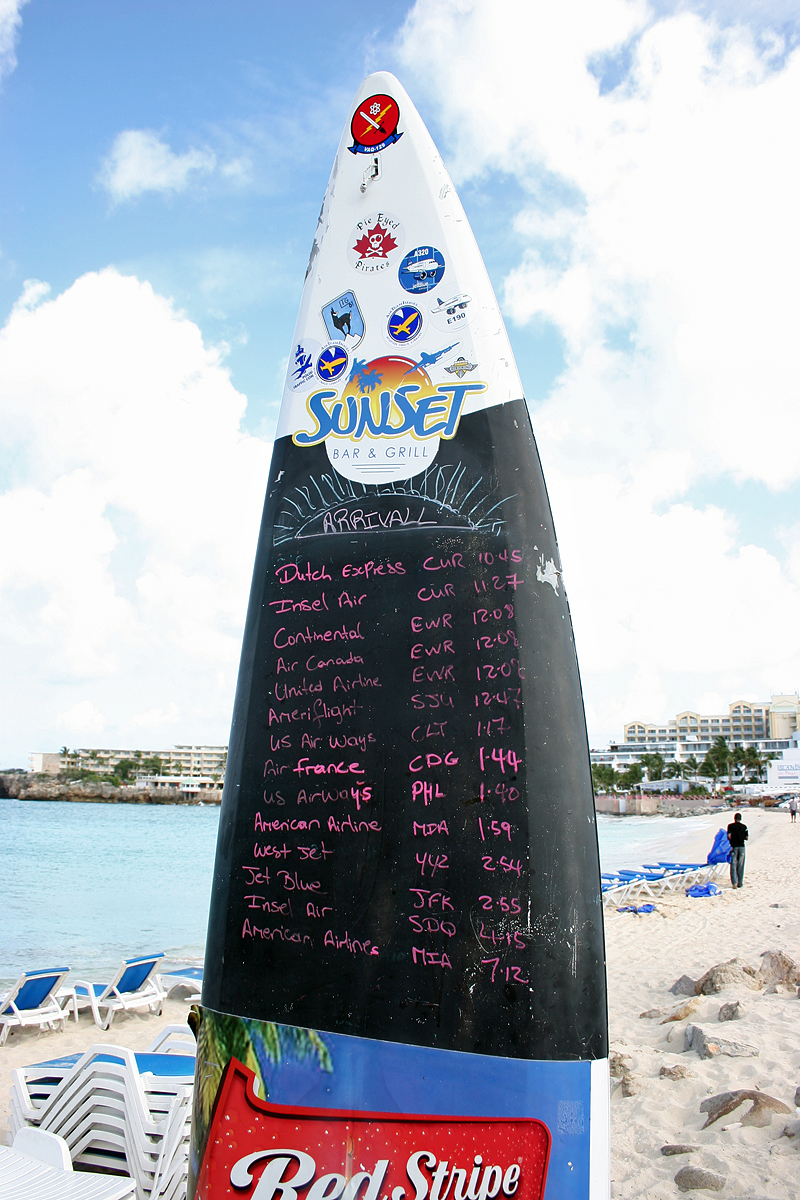 VAQ-135
Pie Eyed
Pirates
A320
E190
SUNSET
BAR & GRILL
ARRIVALL
Dutch Express CUR 10:45
Insel Air CUR 11:27
Continental EWR 12:08
Air Canada EWR 12:08
United Airline EWR 12:08
Ameriflight SJU 12:47
US Air Ways CLT 1:17
Air france CDG 1:44
US AirWays PHL 1:40
American Airline MIA 1:59
West Jet YYZ 2:54
Jet Blue JFK 2:55
Insel Air SDQ 4:15
American Airlines MIA 7:12
Red Stripe